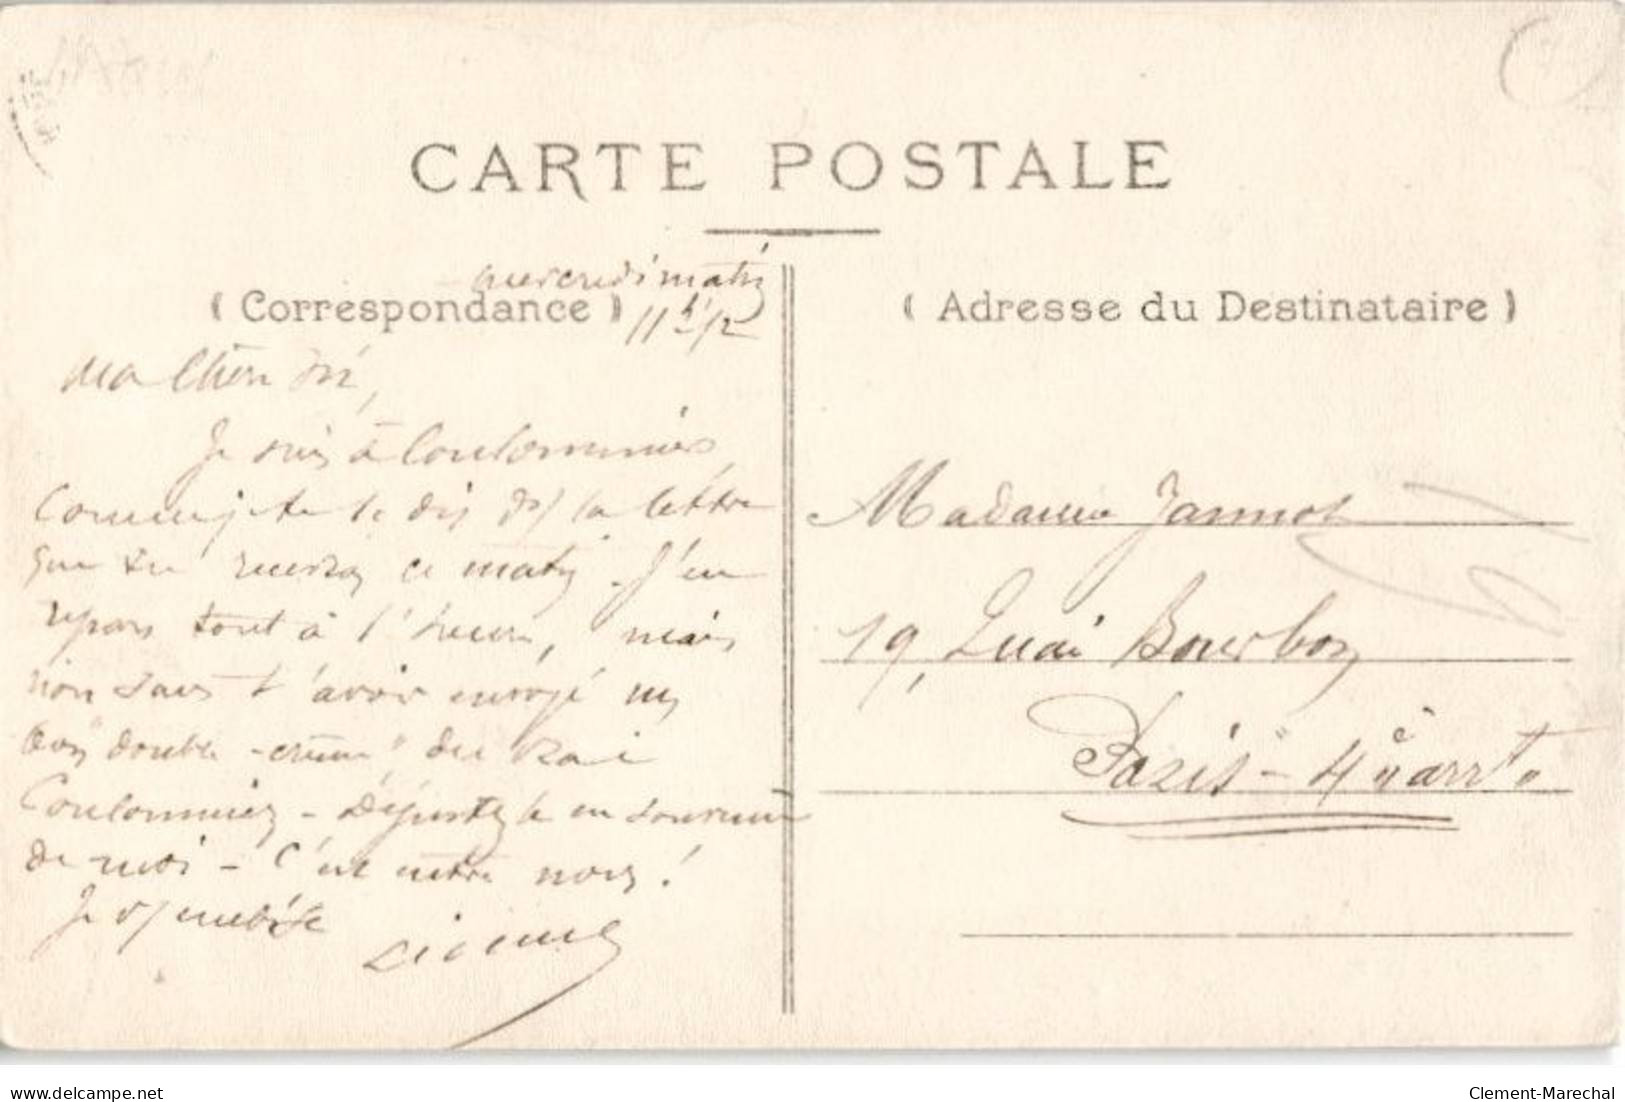 CARTE POSTALE
mercredi matin
( Correspondance ) 11h 1/2
( Adresse du Destinataire )
Ma
Je suis à Coulommiers
Comme je te le dis ds la lettre
que tu recevras ce matin. J'en
repars tout à l'heure, mais
non sans t'avoir envoyé un
bon "double-crème" du vrai
Coulommiers - Dégustez le en souvenir
de moi - C'est notre nom !
Je vs embrasse
Madame Jannot
19, Quai Bourbon
Paris - 4e arrt
delcampe.net
Clement-Marechal